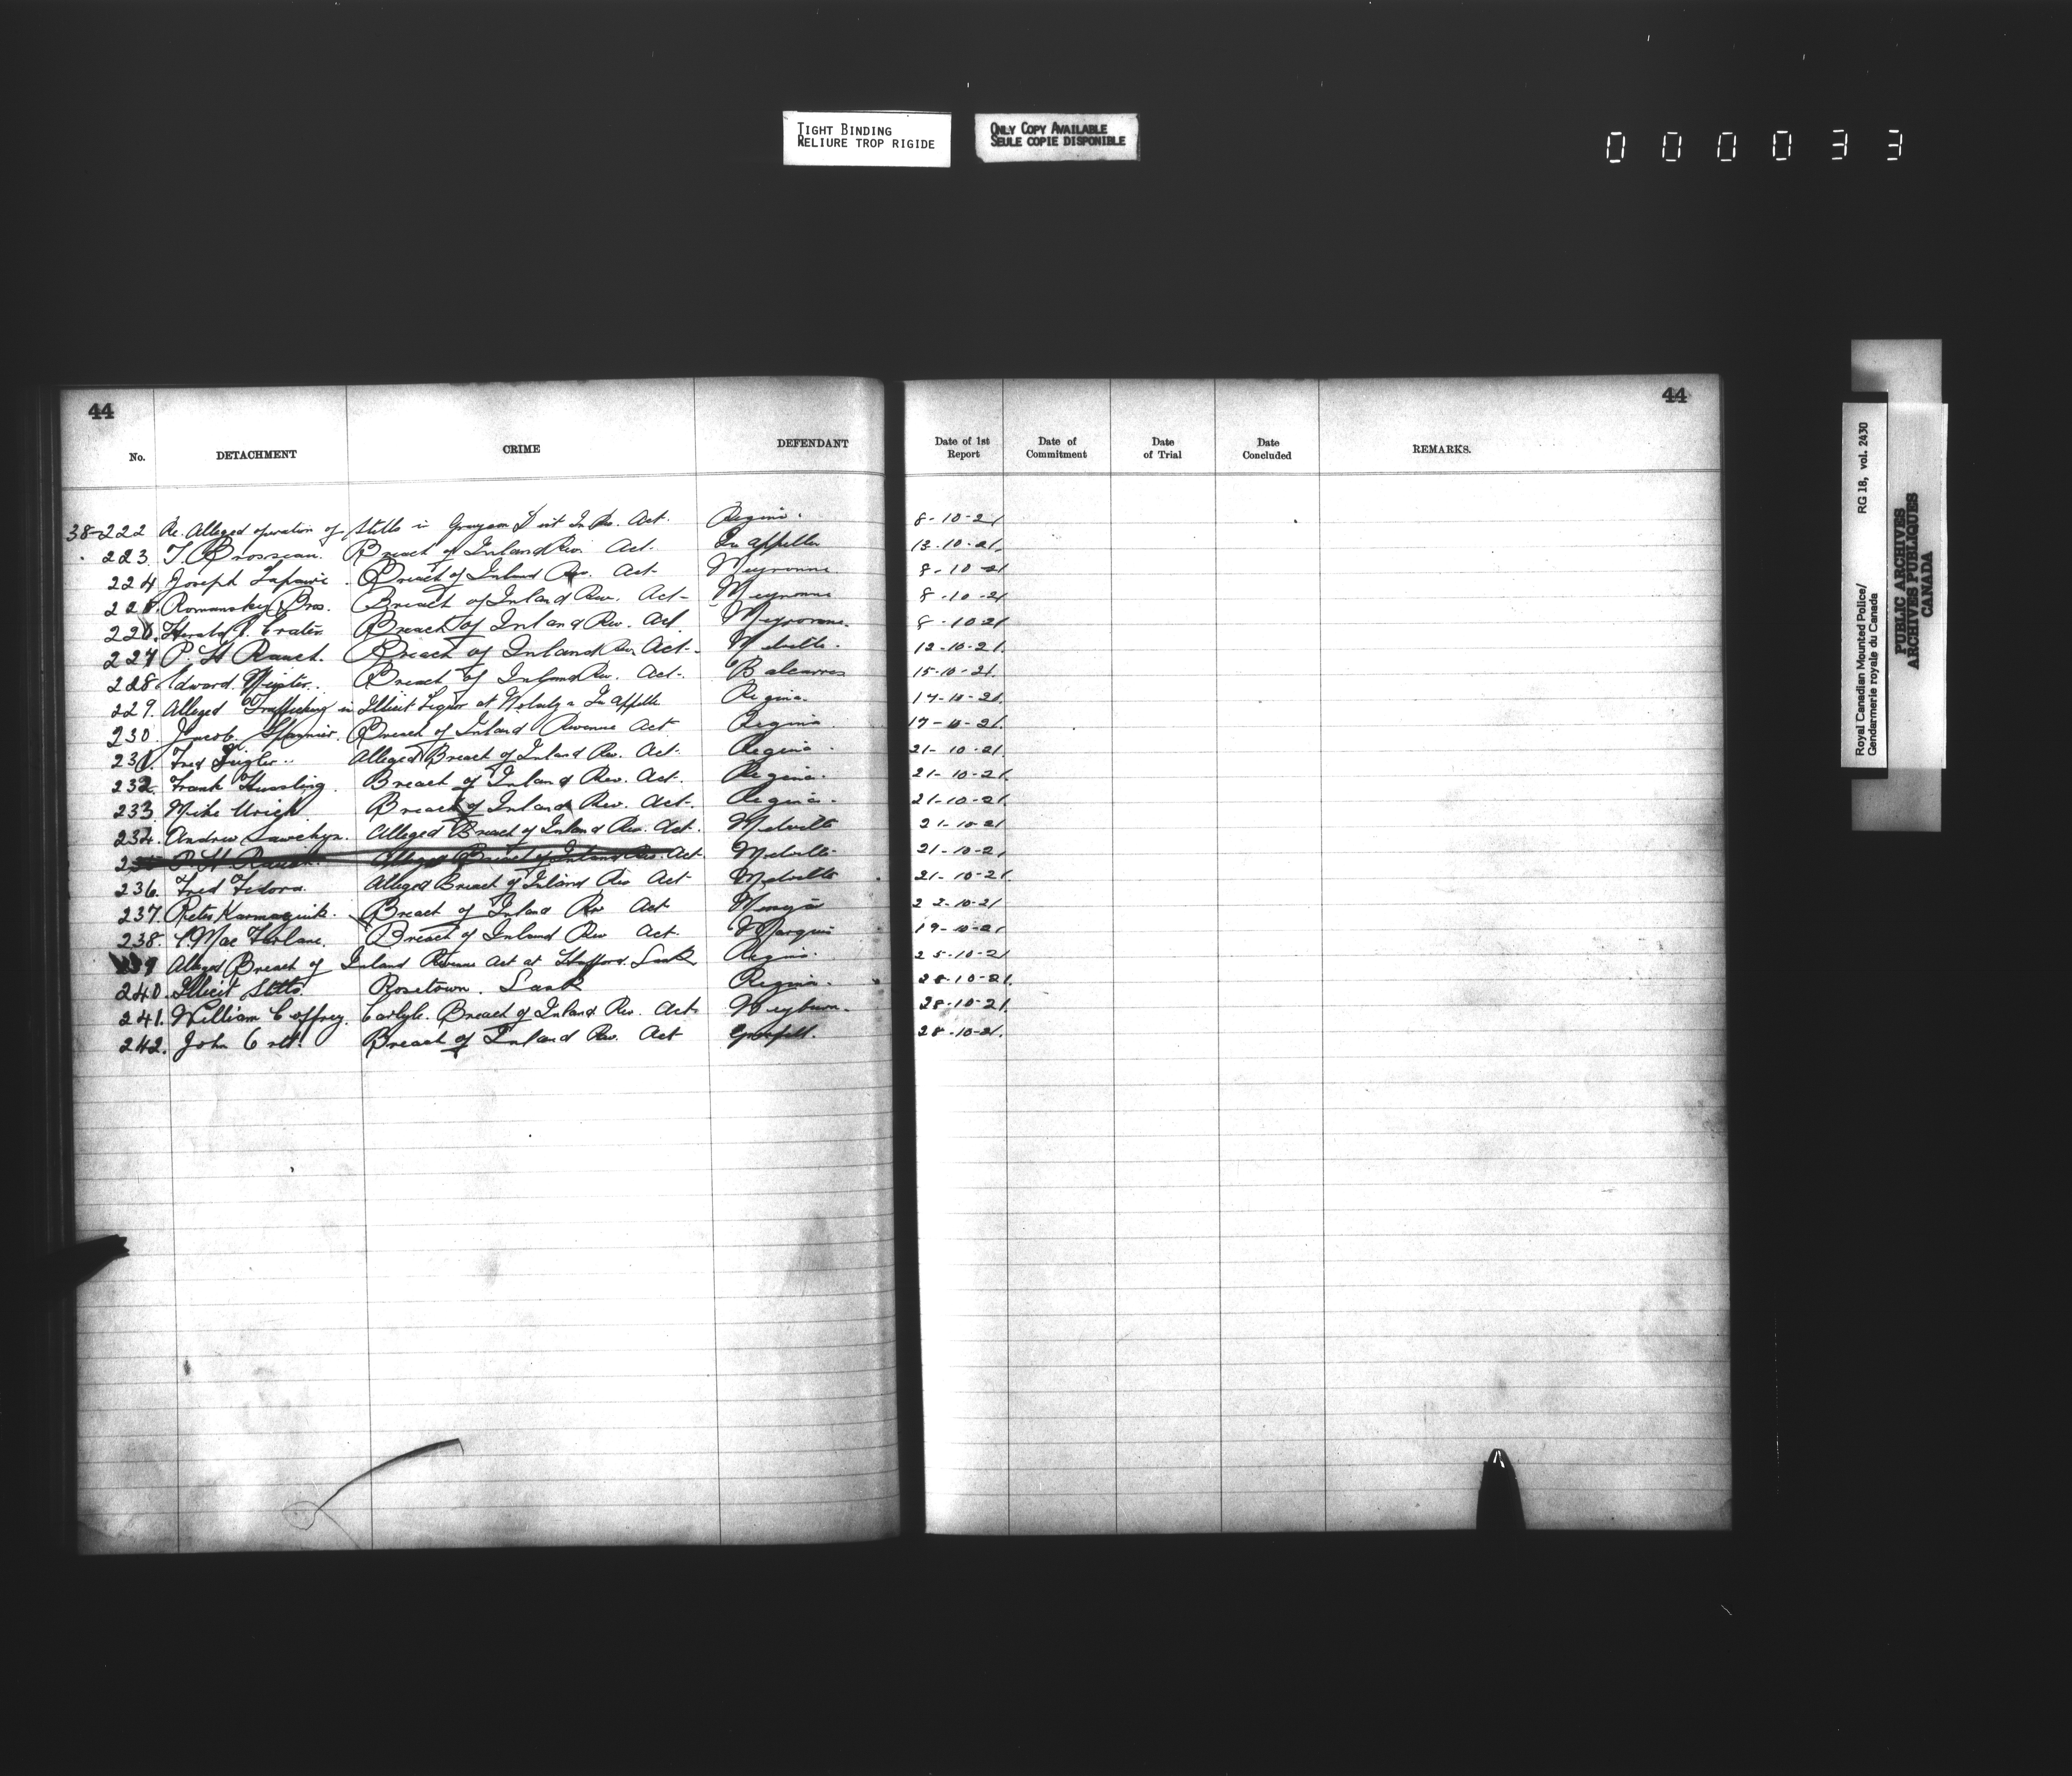 TIGHT BINDING
RELIURE TROP RIGIDE
ONLY COPY AVAILABLE
SEULE COPIE DISPONIBLE
000033
44
44
No. DETACHMENT CRIME DEFENDANT Date of 1st Report Date of Commitment Date of Trial Date Concluded REMARKS.
38-222 Re. Alleged operation of Stills in Grayson Dist In Rev. Act. Regina. 8-10-21
223. T. Brosseau. Breach of Inland Rev. Act. Qu appelle 13-10-21.
224 Joseph Breach of Inland Rev. Act. Meyronne 8-10-21
225. Romansky Bros. Breach of Inland Rev. Act- Meyronne 8-10-21
226. Herald Breach of Inland Rev. Act. Meyronne. 8-10-21
227 P. H Rauch. Breach of Inland Rev Act- Melville. 12-10-21.
228. Edward Breach of Inland Rev. Act. Balcarres 15-10-21.
229. Alleged Trafficking in Illicit Liquor at Qu appelle Regina. 17-10-21.
230. Jacob Breach of Inland Revenue Act Regina. 17-10-21.
231. Fred Alleged Breach of Inland Rev. Act. Regina. 21-10-21
232. Frank Breach of Inland Rev. Act. Regina. 21-10-21.
233. Mike Urich Breach of Inland Rev. Act. Regina. 21-10-21.
234. Andrew Sawchyn. Alleged Breach of Inland Rev. Act. Melville 21-10-21
235 P. H Rauch. Alleged Breach of Inland Rev. Act. Melville 21-10-21
236. Fred Fedora. Alleged Breach of Inland Rev Act- Melville 21-10-21.
237. Peter Breach of Inland Rev Act 22-10-21
238. Mac Farlane. Breach of Inland Rev Act. Marquis 19-10-21
239 Alleged Breach of Inland Revenue Act at Hafford. Sask Regina. 25-10-21
240. Illicit Stills. Rosetown. Sask Regina. 28-10-21.
241. William Caffrey. Carlyle. Breach of Inland Rev. Act. Weyburn. 28-10-21.
242. John Breach of Inland Rev. Act Grenfell. 28-10-21.
Royal Canadian Mounted Police/ RG 18, vol. 2430
Gendarmerie royale du Canada
PUBLIC ARCHIVES
ARCHIVES PUBLIQUES
CANADA